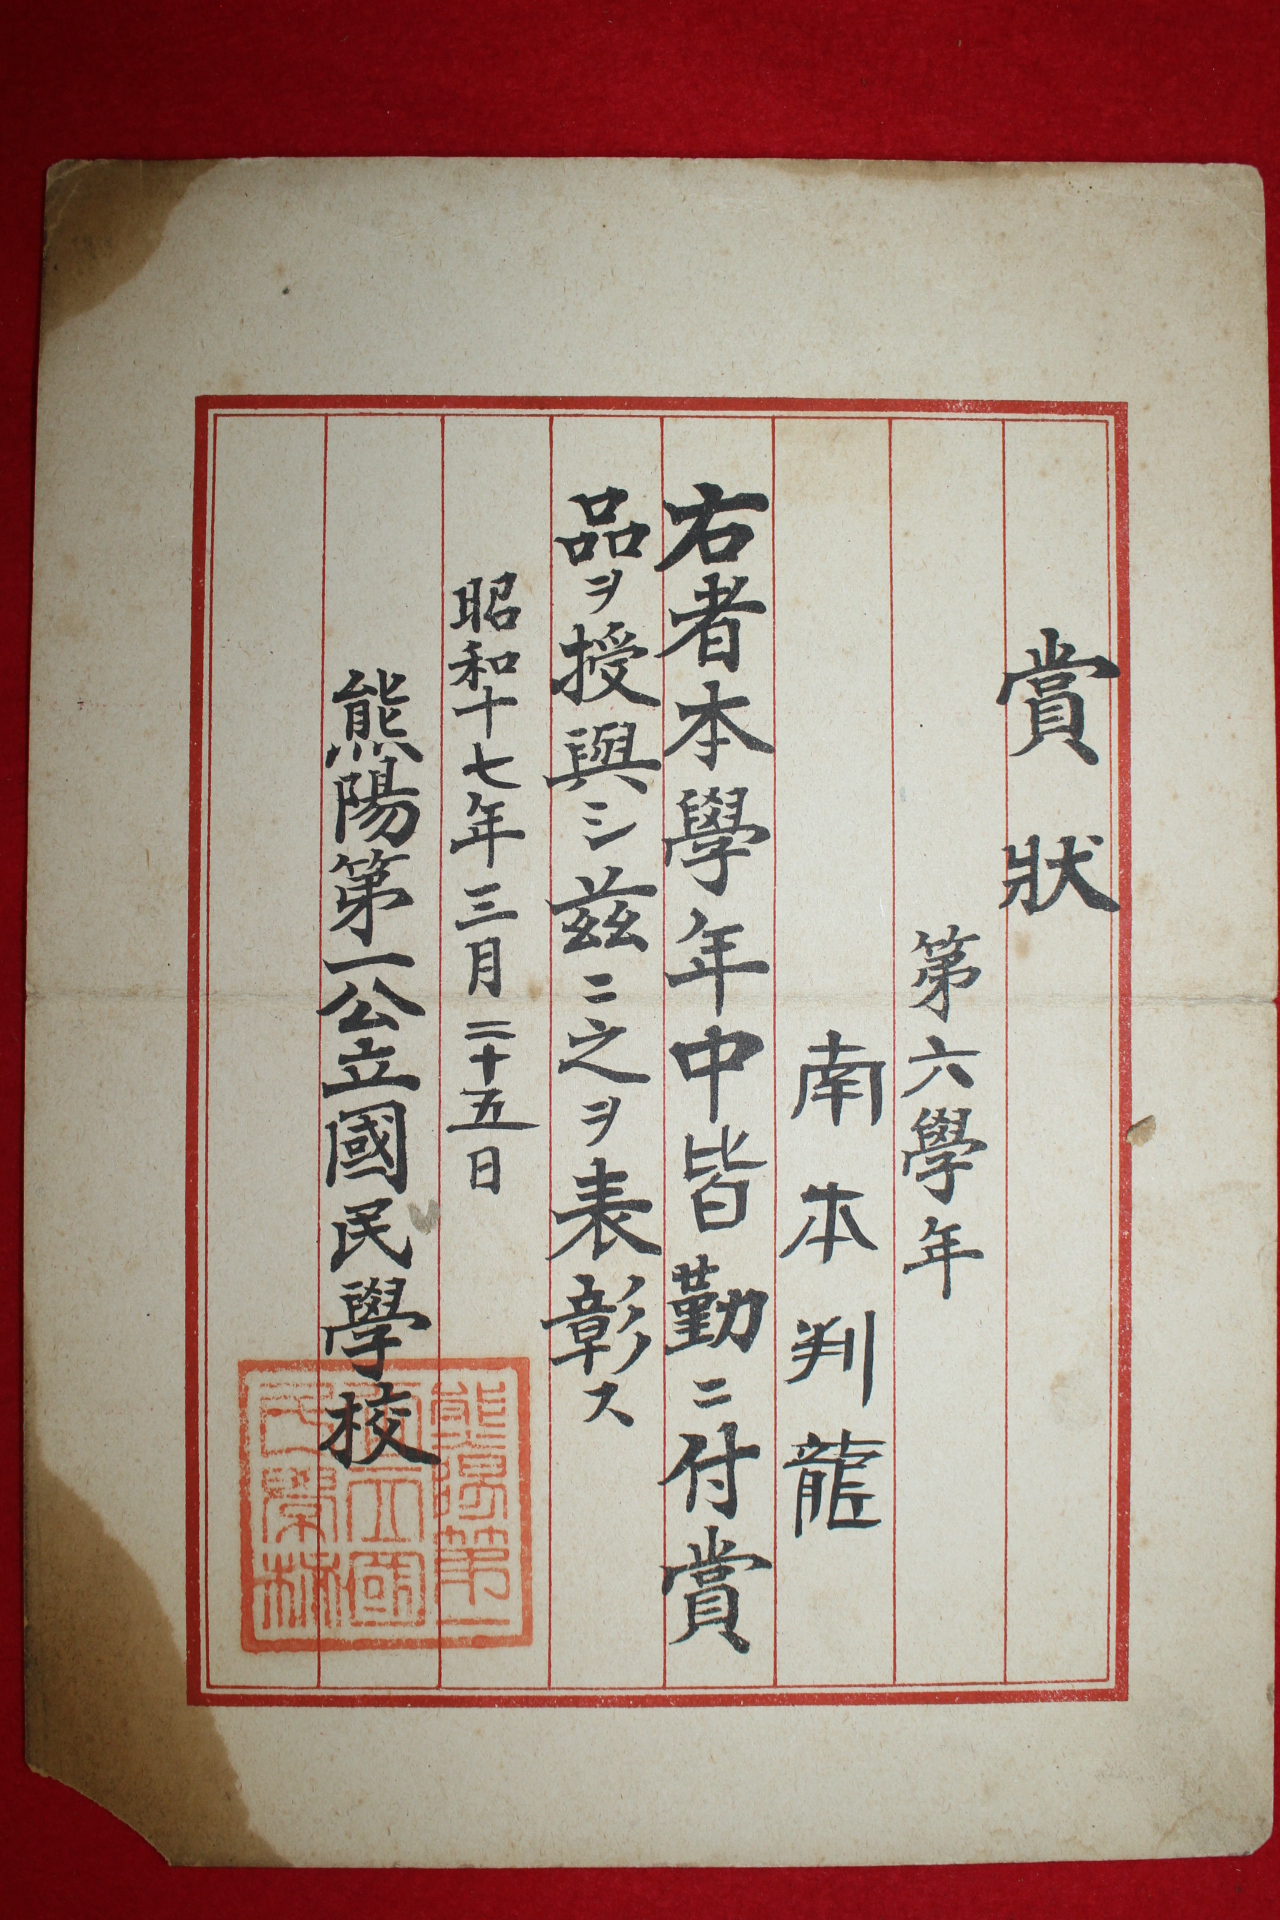 賞狀
第六學年
南本判龍
右者本學年中皆勤ニ付賞
品ヲ授與シ茲ニ之ヲ表彰ス
昭和十七年三月二十五日
熊陽第一公立國民學校
熊陽第一
公立國
民學校